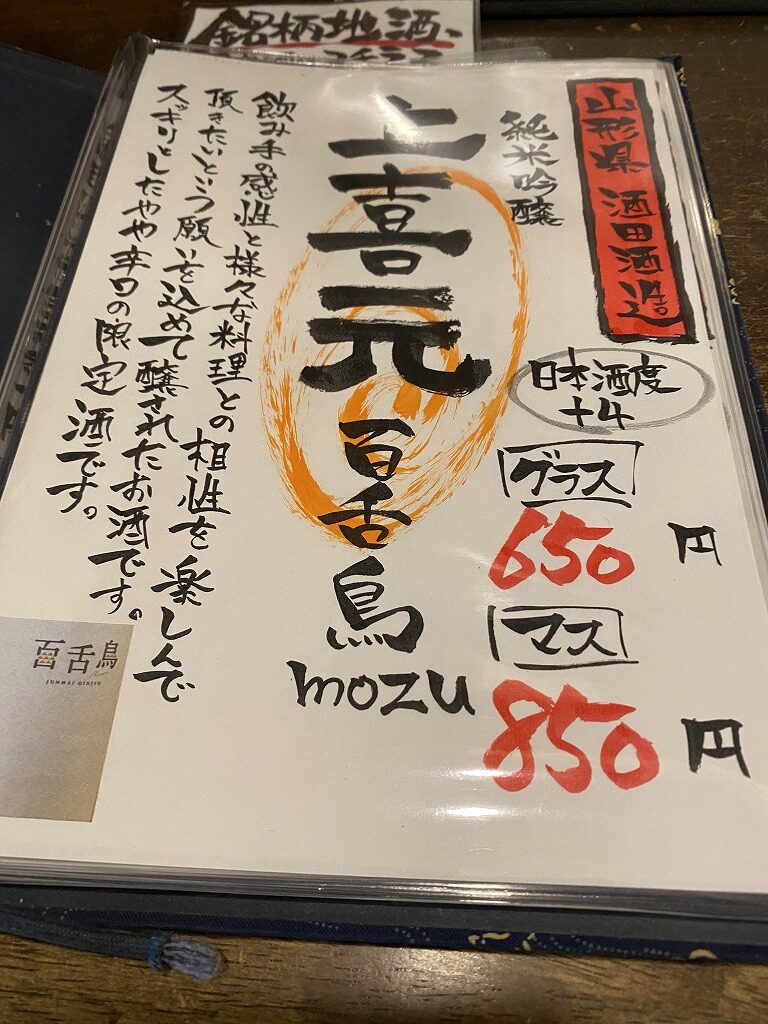 銘柄地酒、
山形県 酒田酒造
純米吟醸
日本酒度
+4
グラス
650円
マス
850円
上喜元 百舌鳥
mozu
飲み手の感性と様々な料理との相性を楽しんで
頂きたいという願いを込めて醸されたお酒です。
スッキリとしたやや辛口の限定酒です。
百舌鳥
JUNMAI GINJYO